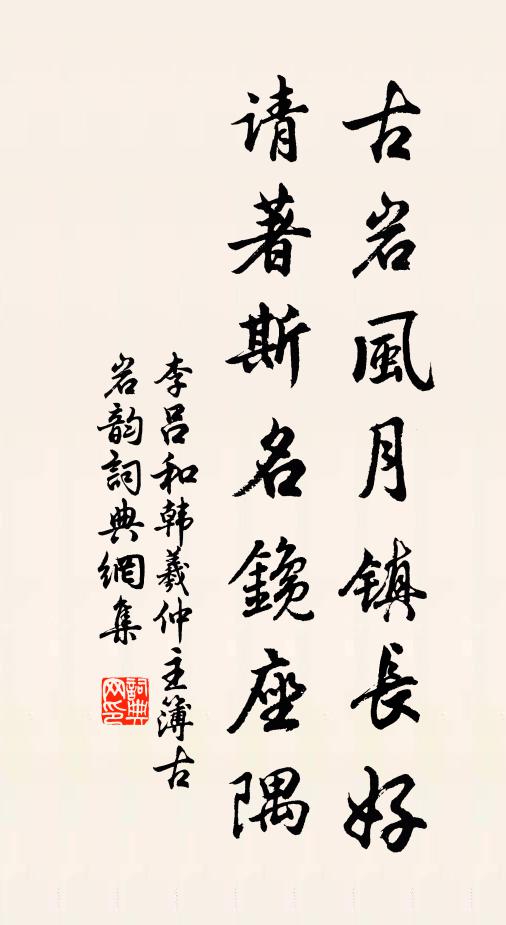 古岩風月镇長好
请著斯名鑱座隅
李吕和韩羲仲主簿古
岩韵詞典網集
詞典
网印